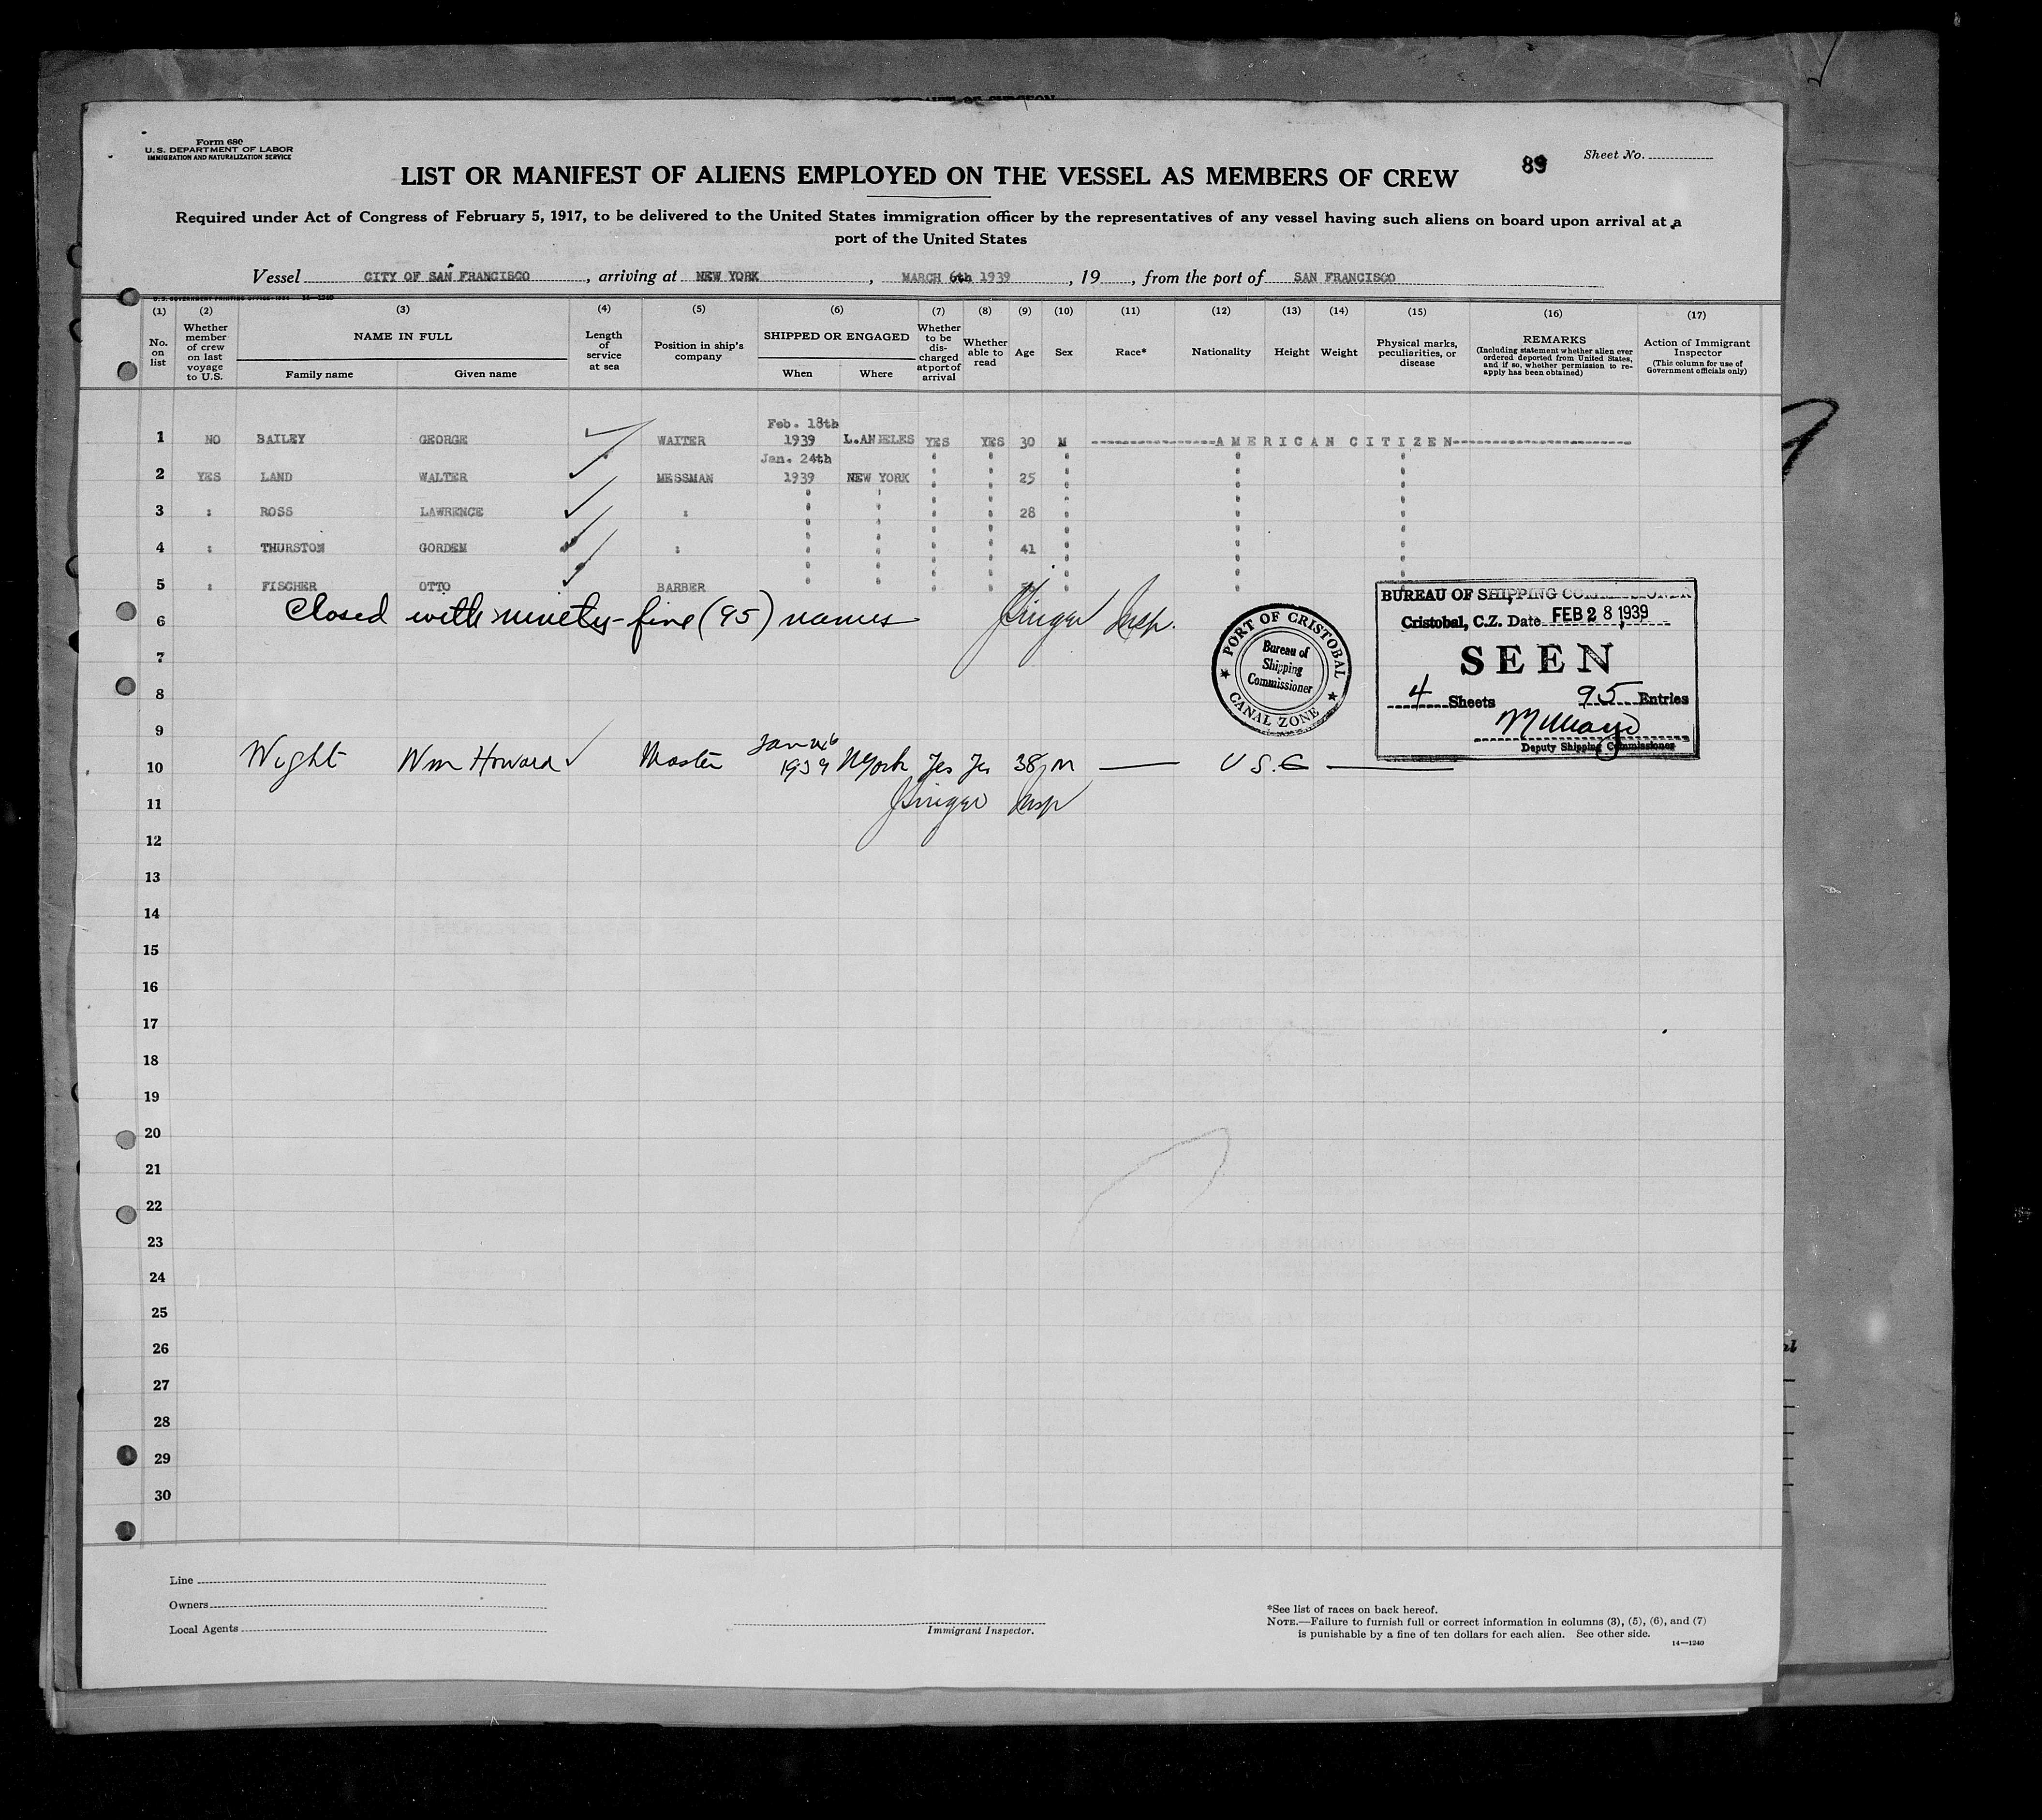 Form 680
U. S. DEPARTMENT OF LABOR
IMMIGRATION AND NATURALIZATION SERVICE
89
Sheet No.
LIST OR MANIFEST OF ALIENS EMPLOYED ON THE VESSEL AS MEMBERS OF CREW
Required under Act of Congress of February 5, 1917, to be delivered to the United States immigration officer by the representatives of any vessel having such aliens on board upon arrival at a
port of the United States
Vessel CITY OF SAN FRANCISCO, arriving at NEW YORK, MARCH 6th 1939, 19, from the port of SAN FRANCISCO
(1) (2) (3) (4) (5) (6) (7) (8) (9) (10) (11) (12) (13) (14) (15) (16) (17)
No. on list
Whether member of crew on last voyage to U.S.
NAME IN FULL
Family name
Given name
Length of service at sea
Position in ship's company
SHIPPED OR ENGAGED
When
Where
Whether to be discharged at port of arrival
Whether able to read
Age
Sex
Race*
Nationality
Height
Weight
Physical marks, peculiarities, or disease
REMARKS
(Including statement whether alien ever ordered deported from United States, and if so, whether permission to re-apply has been obtained)
Action of Immigrant Inspector
(This column for use of Government officials only)
1 NO BAILEY GEORGE WAITER Feb. 18th 1939 L.ANJELES YES YES 30 M AMERICAN CITIZEN
2 YES LAND WALTER MESSMAN Jan. 24th 1939 NEW YORK " " 25 " " "
3 : ROSS LAWRENCE : " " " " 28 " " "
4 : THURSTON GORDEN : " " " " 41 " " "
5 : FISCHER OTTO BARBER " " " " " " "
6 Closed with ninety-five (95) names Insp.
7
8
9
10 Wight Wm Howard Master Jan 1939 NYork Yes Yes 38 M U S.C
11 Insp
12
13
14
15
16
17
18
19
20
21
22
23
24
25
26
27
28
29
30
PORT OF CRISTOBAL
Bureau of
Shipping
Commissioner
CANAL ZONE
BUREAU OF SHIPPING COMMISSIONER
Cristobal, C.Z. Date FEB 28 1939
SEEN
4 Sheets 95 Entries
Deputy Shipping Commissioner
Line
Owners
Local Agents
Immigrant Inspector.
*See list of races on back hereof.
NOTE.—Failure to furnish full or correct information in columns (3), (5), (6), and (7)
is punishable by a fine of ten dollars for each alien. See other side.
14—1240